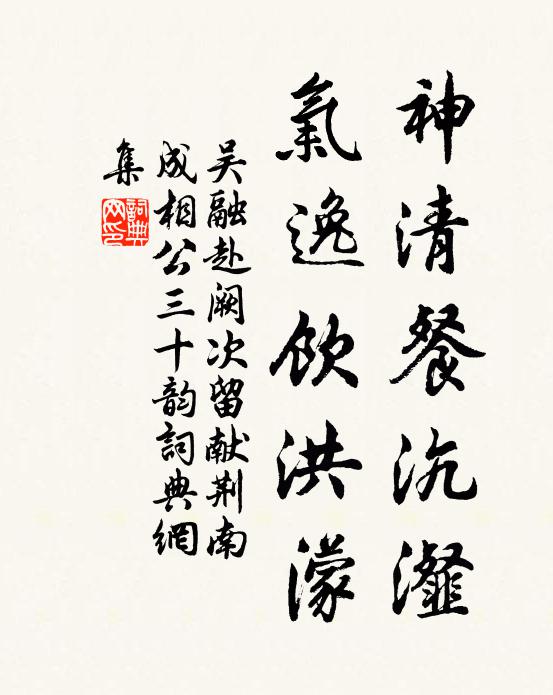 神清餐沆瀣
氣逸飲洪濛
吴融赴阙次留献荆南
成相公三十韵詞典網
集
詞典
网印